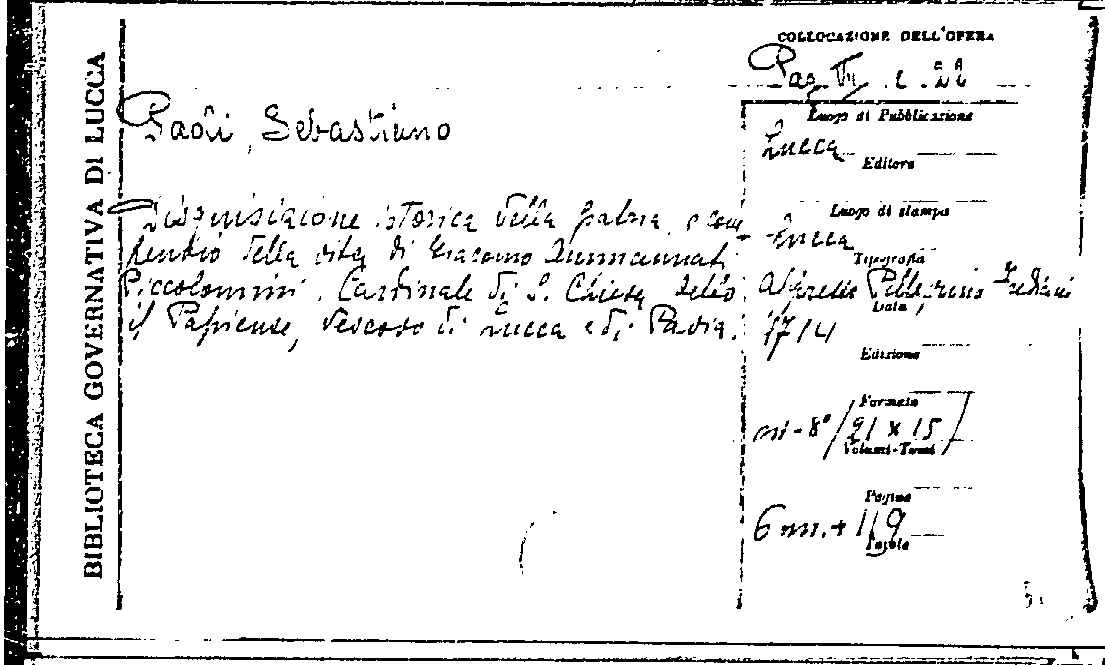 BIBLIOTECA GOVERNATIVA DI LUCCA
COLLOCAZIONE DELL'OPERA
Paoli, Sebastiano
Disquisizione istorica della patria, e com-
pendio della vita di Giacomo Ammannati
Piccolomini. Cardinale di S. Chiesa detto
il Papiense, Vescovo di Lucca e di Pavia.
Luogo di Pubblicazione
Lucca
Editore
Luogo di stampa
Lucca
Tipografia
Pellegrino Frediani
Data
1714
Edizione
Formato
in-8° / 21 x 15 /
Volumi-Tomi
Pagine
6 nn. + 119
Tavole